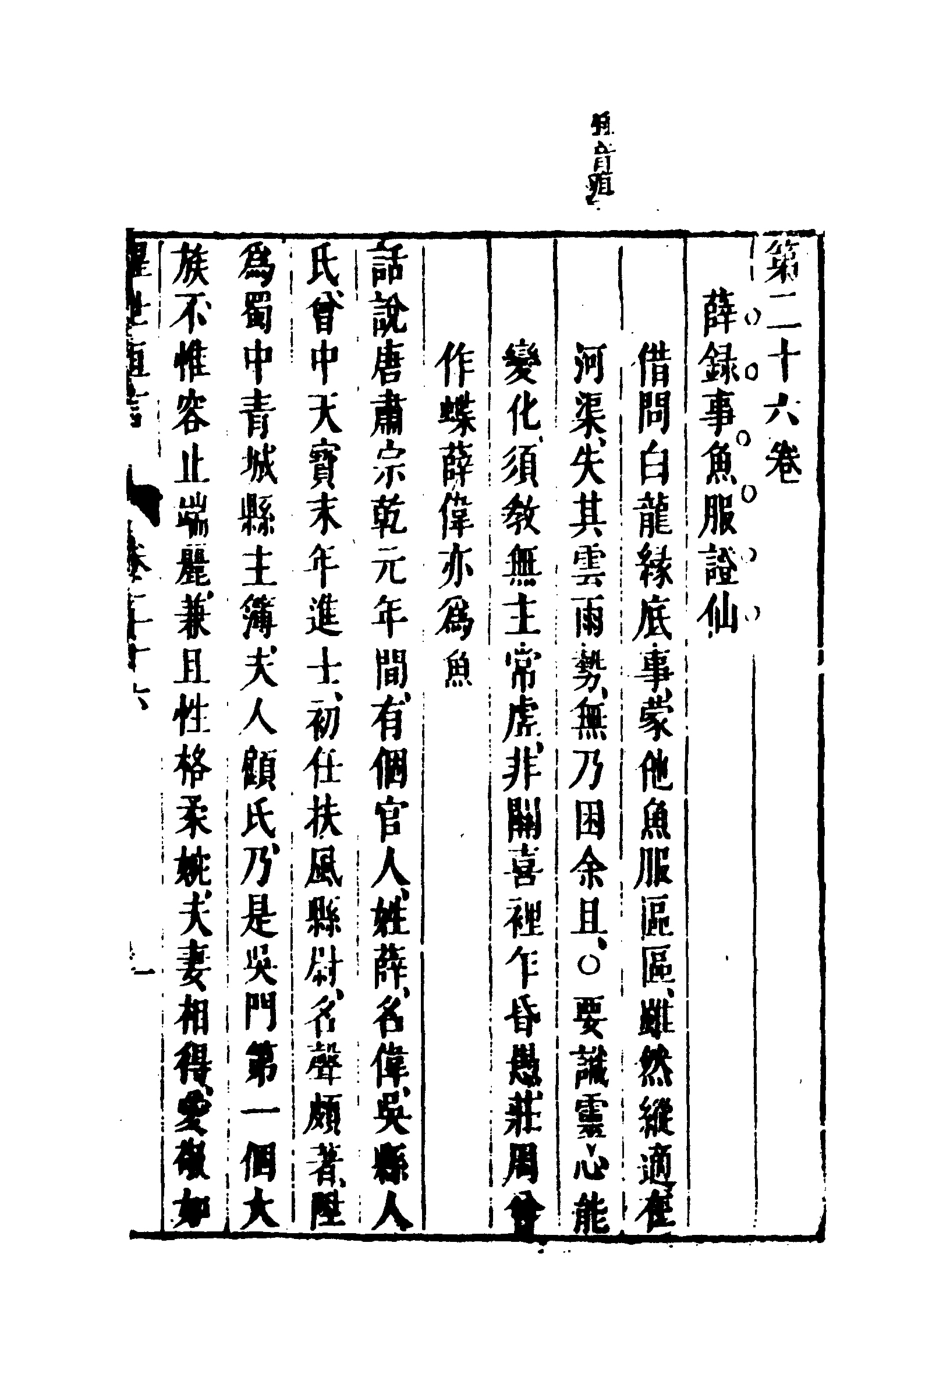 第二十六卷
薛録事魚服證仙
借問白龍緣底事、蒙他魚服區區、雖然縱適在
河渠、失其雲雨勢、無乃困余且、○要識靈心能
變化、須教無主常虛、非關喜裡乍昏愚、莊周曾
作蝶薛偉亦爲魚
話說唐肅宗乾元年間、有個官人、姓薛、名偉、吳縣人
氏、曾中天寶末年進士、初任扶風縣尉、名聲頗著、陞
爲蜀中青城縣主簿、夫人顧氏、乃是吳門第一個大
族、不惟容止端麗、兼且性格柔婉、夫妻相得、愛敬如
醒世恒言 卷二十六 一